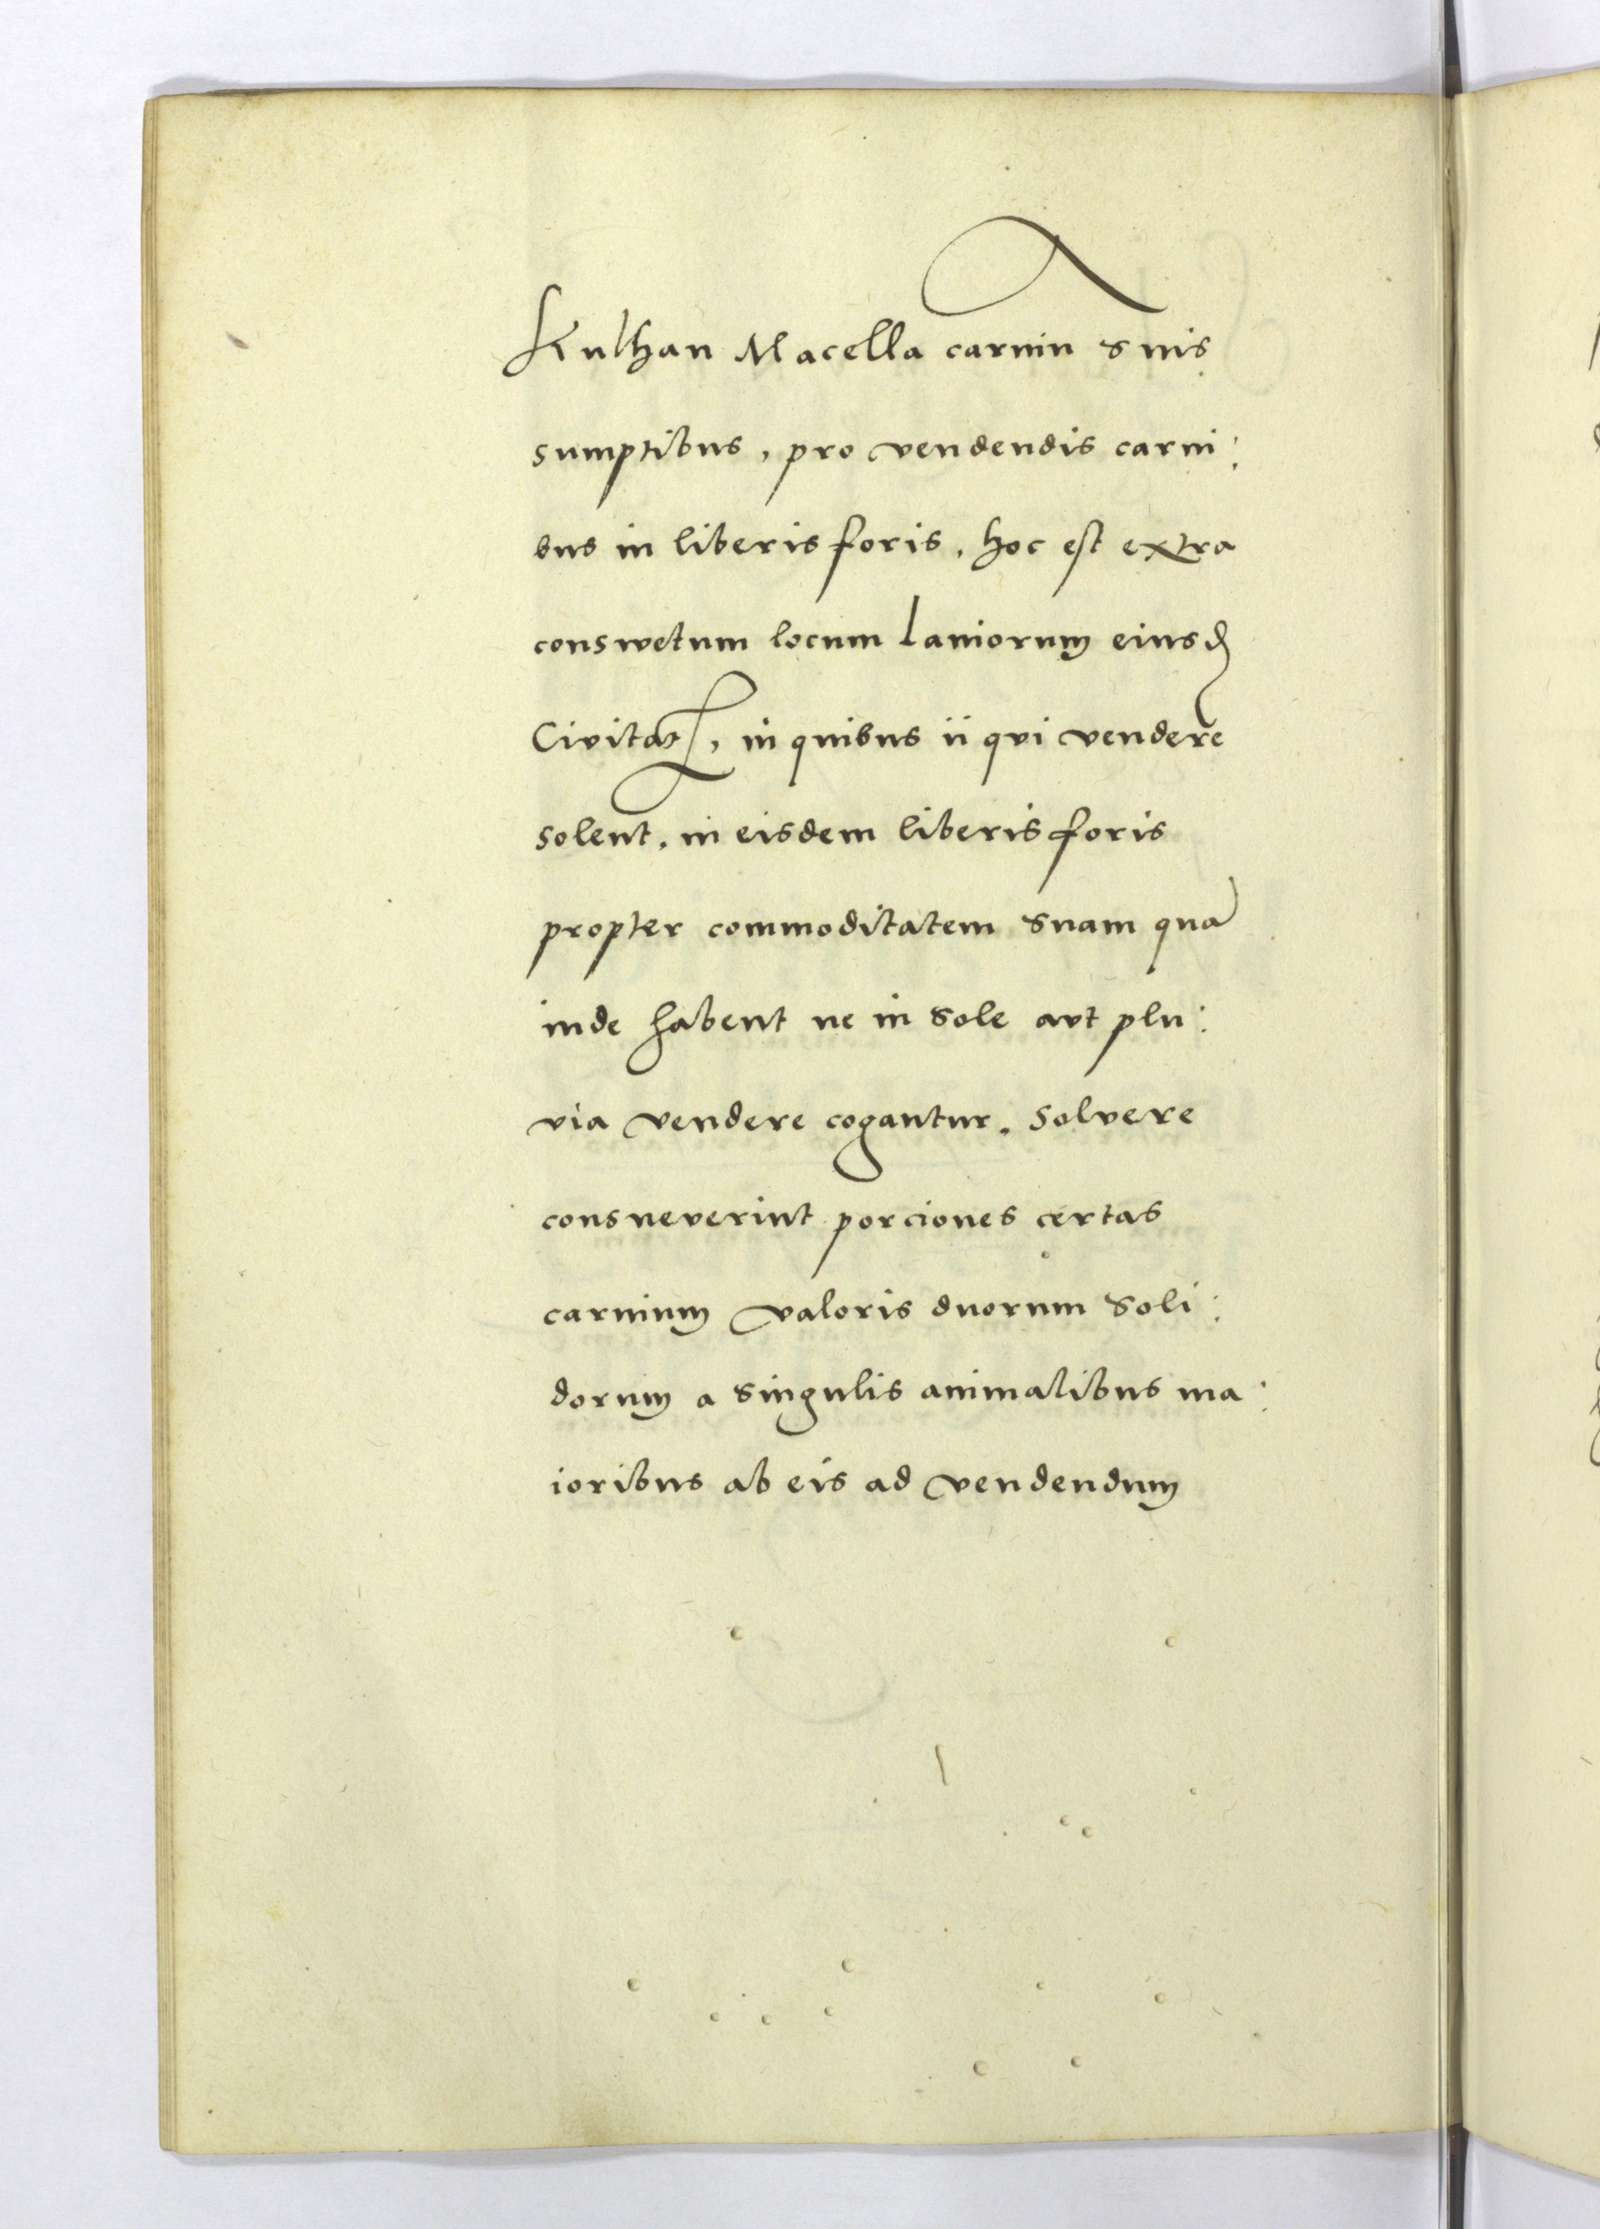 Kulhan Macella carniu suis
sumptibus, pro vendendis carni:
bus in liberis foris, hoc est extra
conswetum locum Laniorum eiusd
Civitatis, in quibus ii qui vendere
solent, in eisdem liberis foris
propter commoditatem suam qua
inde habent ne in sole aut plu:
via vendere cogantur, solvere
consueverint porciones certas
carnium valoris duorum soli:
dorum a singulis animalibus ma:
ioribus ab eis ad vendendum